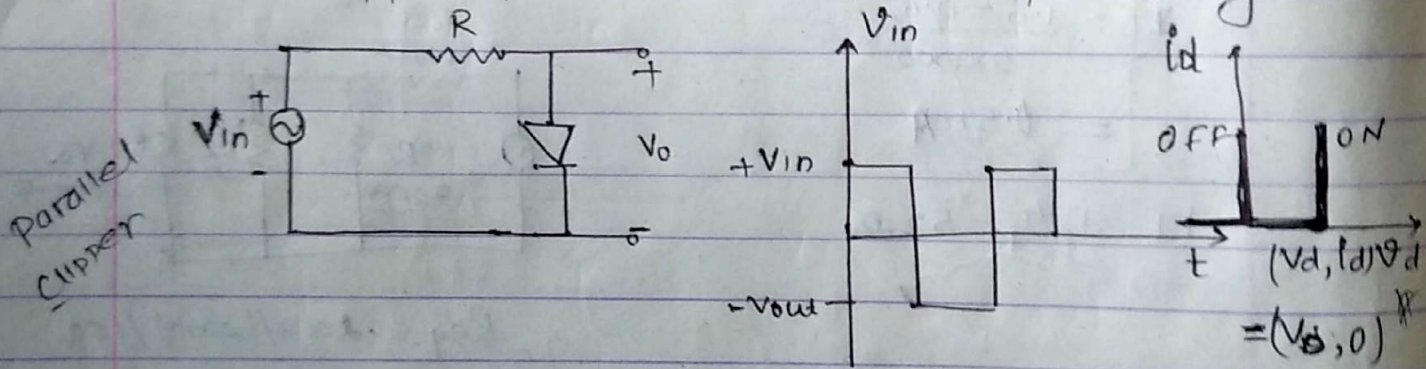 Parallel
Clipper
R
+
Vin
-
+
Vo
-
Vin
+Vin
-Vout
t
id
OFF
ON
(Vd, id) Vd
=(Vo, 0)